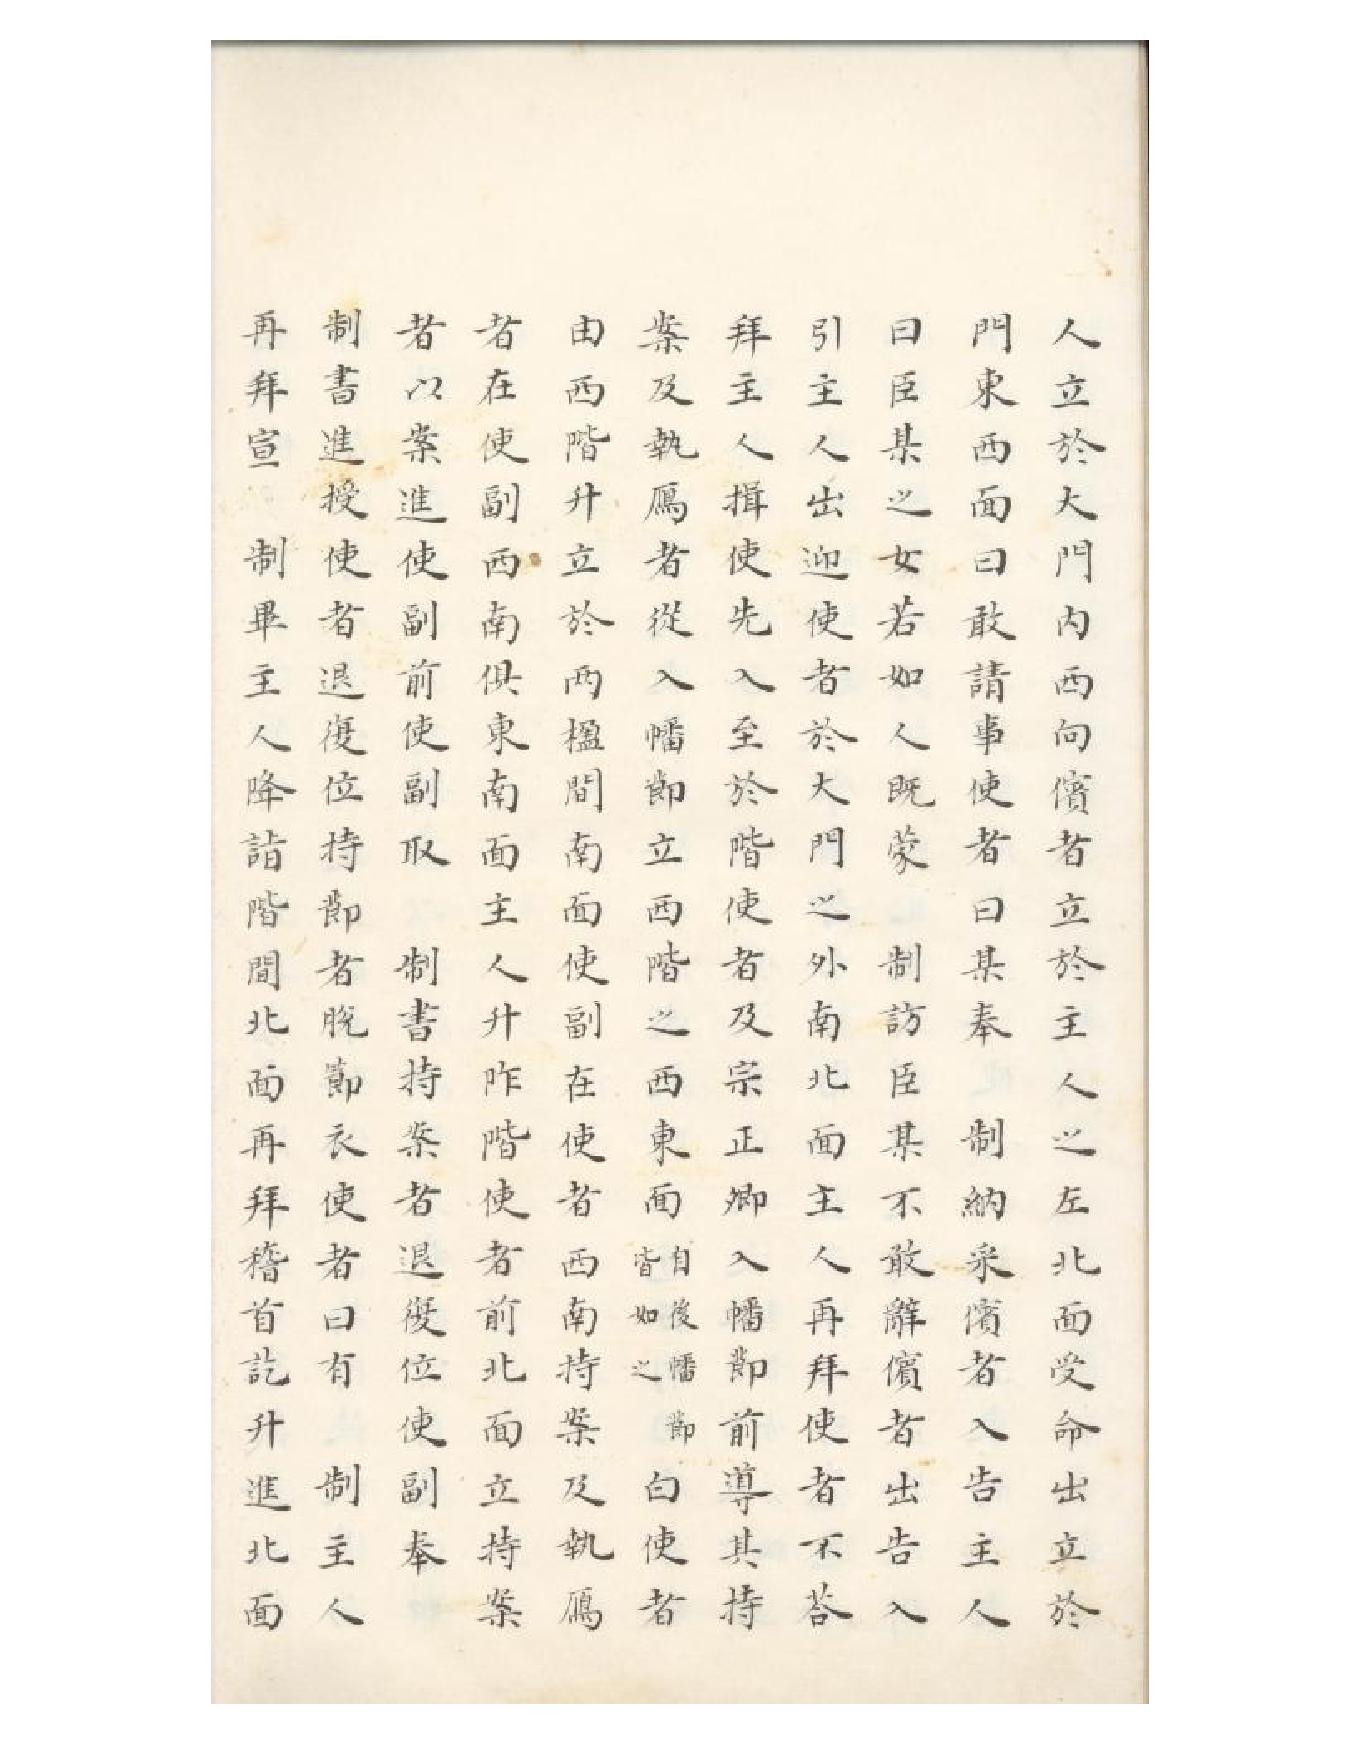 人立於大門內西向儐者立於主人之左北面受命出立於
門東西面曰敢請事使者曰某奉　制納采儐者入告主人
曰臣某之女若如人既蒙　制訪臣某不敢辭儐者出告入
引主人出迎使者於大門之外南北面主人再拜使者不荅
拜主人揖使先入至於階使者及宗正卿入幡節前導其持
案及執鴈者從入幡節立西階之西東面自後幡節皆如之白使者
由西階升立於兩楹間南面使副在使者西南持案及執鴈
者在使副西南俱東南面主人升阼階使者前北面立持案
者以案進使副前使副取　制書持案者退復位使副奉
制書進授使者退復位持節者脫節衣使者曰有　制主人
再拜宣　制畢主人降詣階間北面再拜稽首訖升進北面